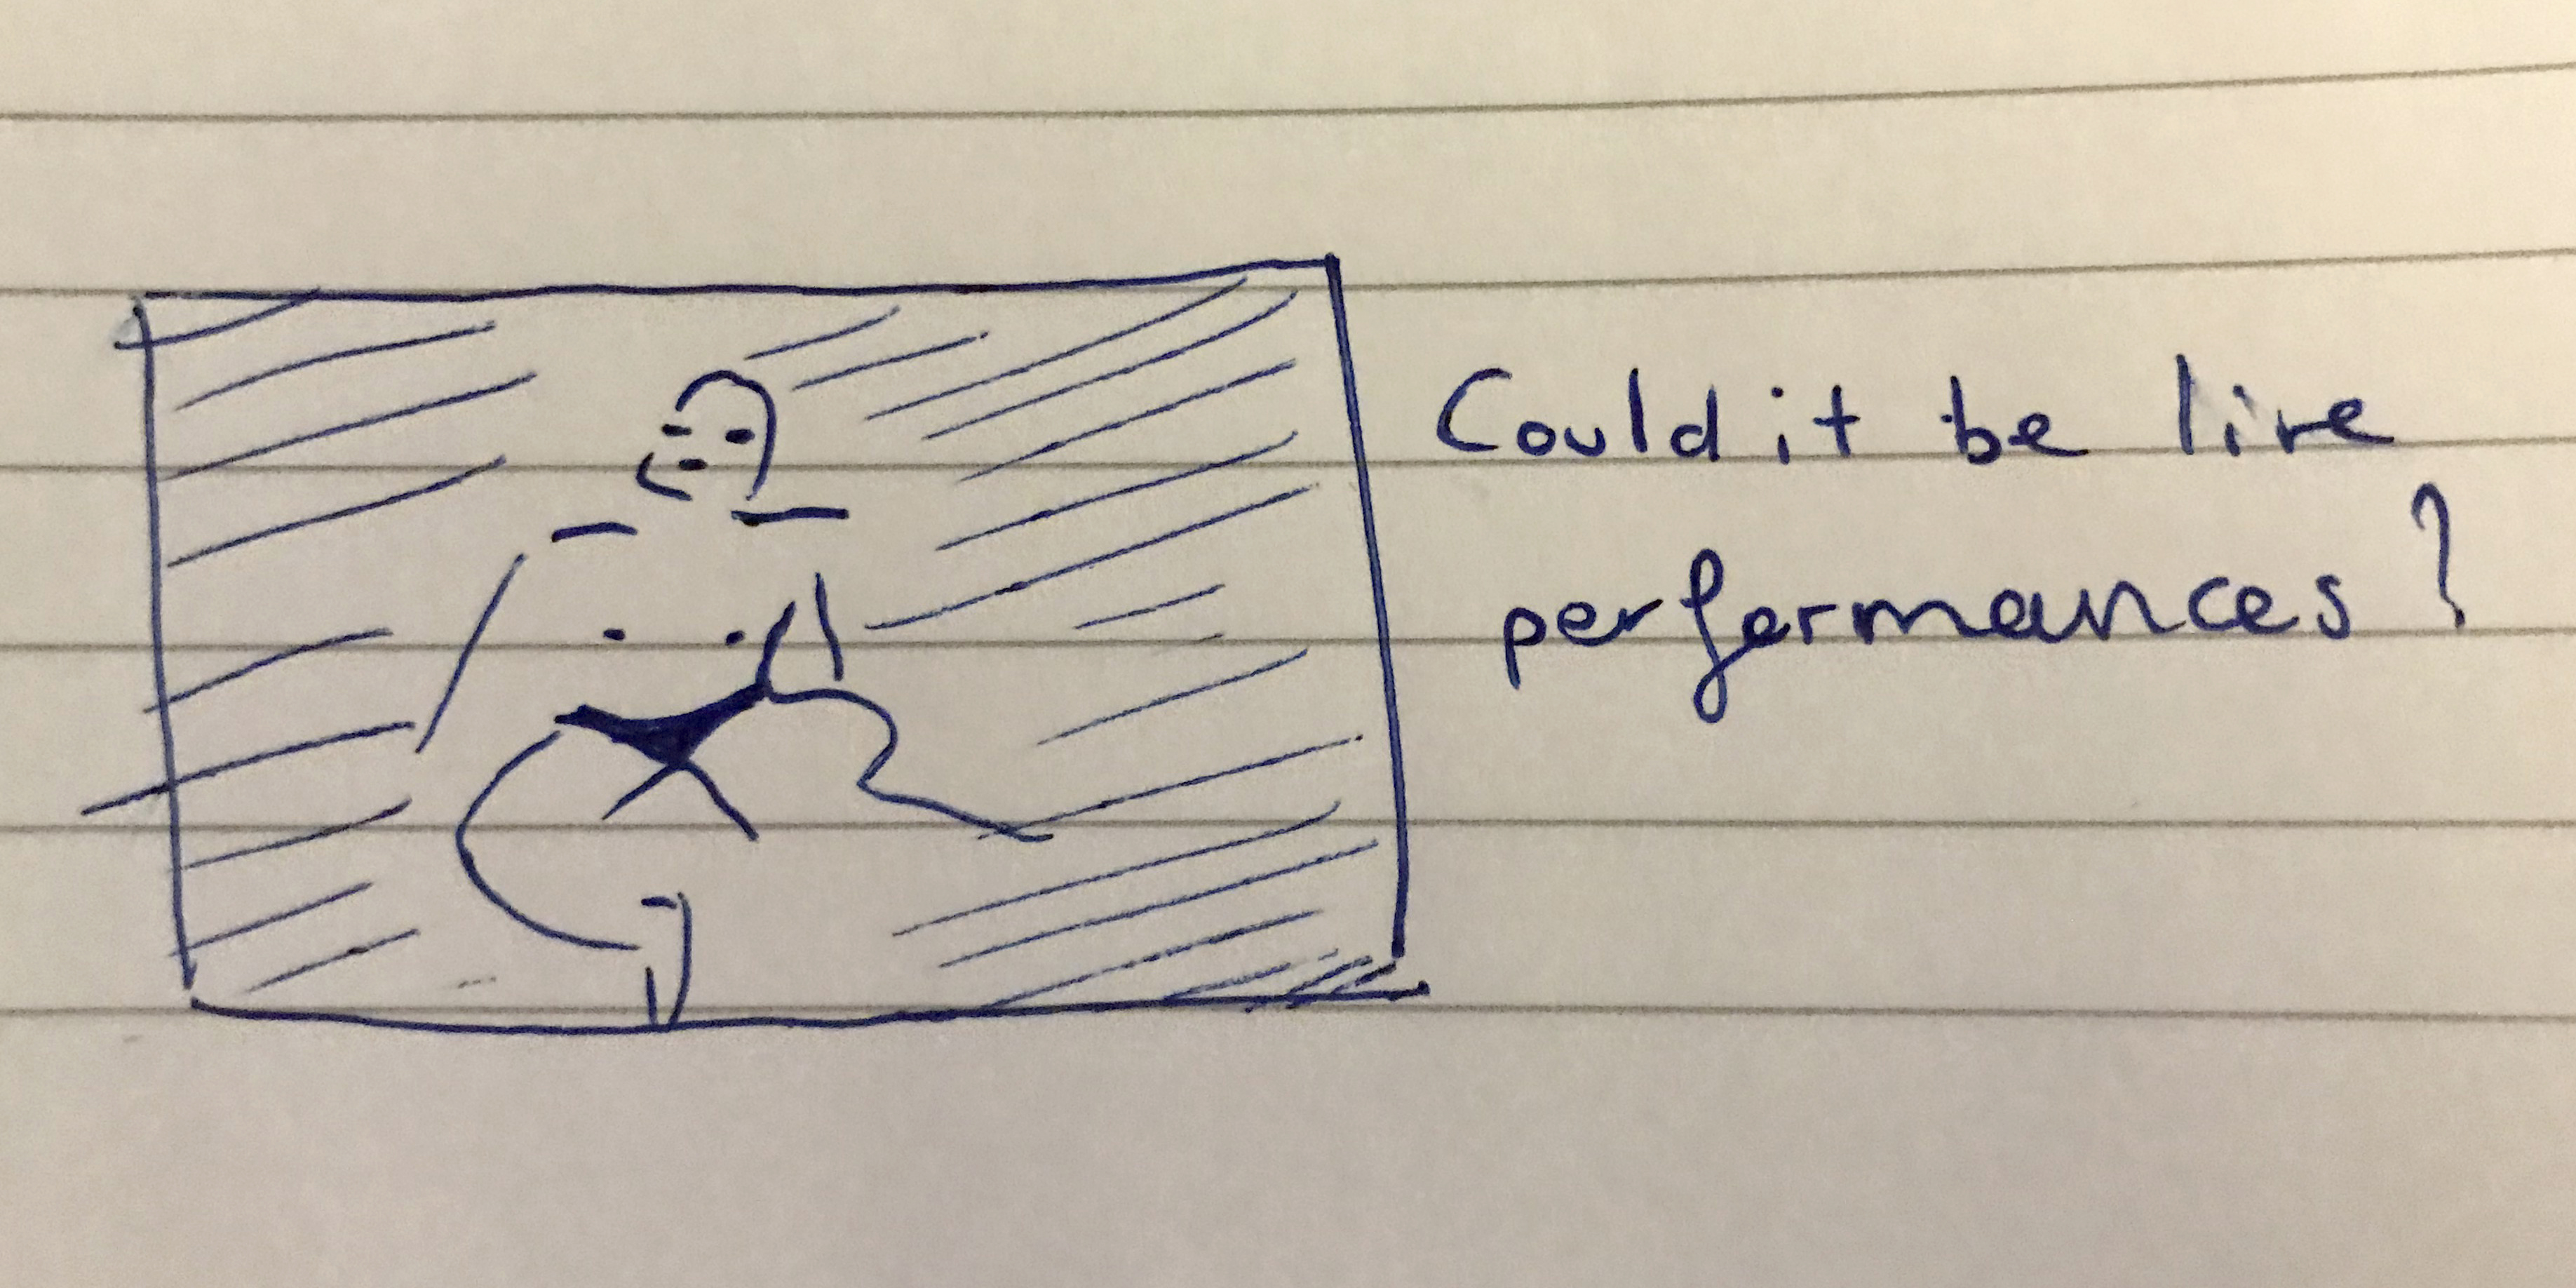 Could it be live
performances?